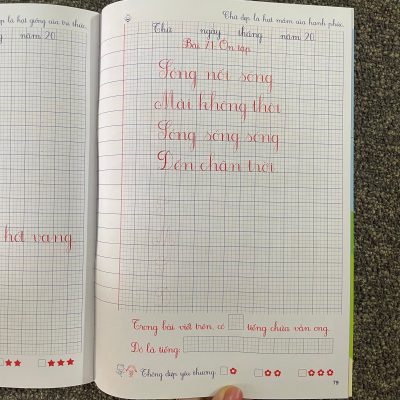 là hạt giống của tri thức.
năm 20
hót vang.
Chữ đẹp là hạt mầm của hạnh phúc.
Thứ ngày tháng năm 20
Bài 71: Ôn tập
Sóng nối sóng
Mãi không thôi
Sóng sóng sóng
Đến chân trời
Trong bài viết trên, có tiếng chứa vần ong.
Đó là tiếng:
Thông điệp yêu thương:
79